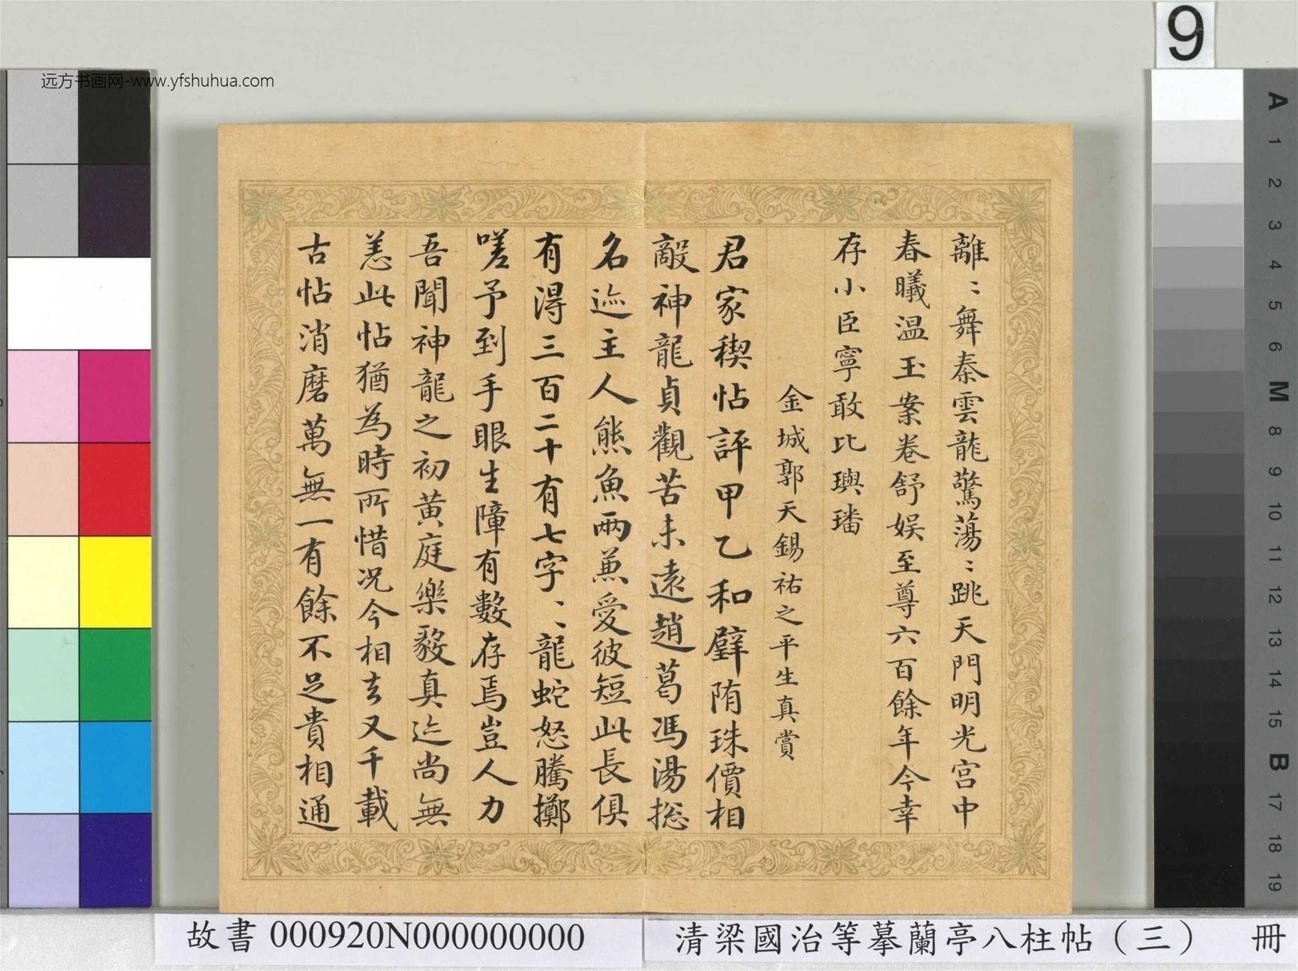 9
远方书画网-www.yfshuhua.com
離〻舞秦雲龍驚蕩〻跳天門明光宮中
春曦溫玉案卷舒娱至尊六百餘年今幸
存小臣寧敢比璵璠
金城郭天錫祐之平生真賞
君家稧帖評甲乙和璧隋珠價相
敵神龍貞觀苦未遠趙葛馮湯摠
名迹主人熊魚兩兼愛彼短此長俱
有得三百二十有七字〻龍蛇怒騰擲
嗟予到手眼生障有數存焉豈人力
吾聞神龍之初黄庭樂毅真迹尚無
恙此帖猶為時所惜况今相去又千載
古帖消磨萬無一有餘不足貴相通
A 1 2 3 4 5 6 M 8 9 10 11 12 13 14 15 B 17 18 19
故書 000920N000000000
清梁國治等摹蘭亭八柱帖（三） 冊